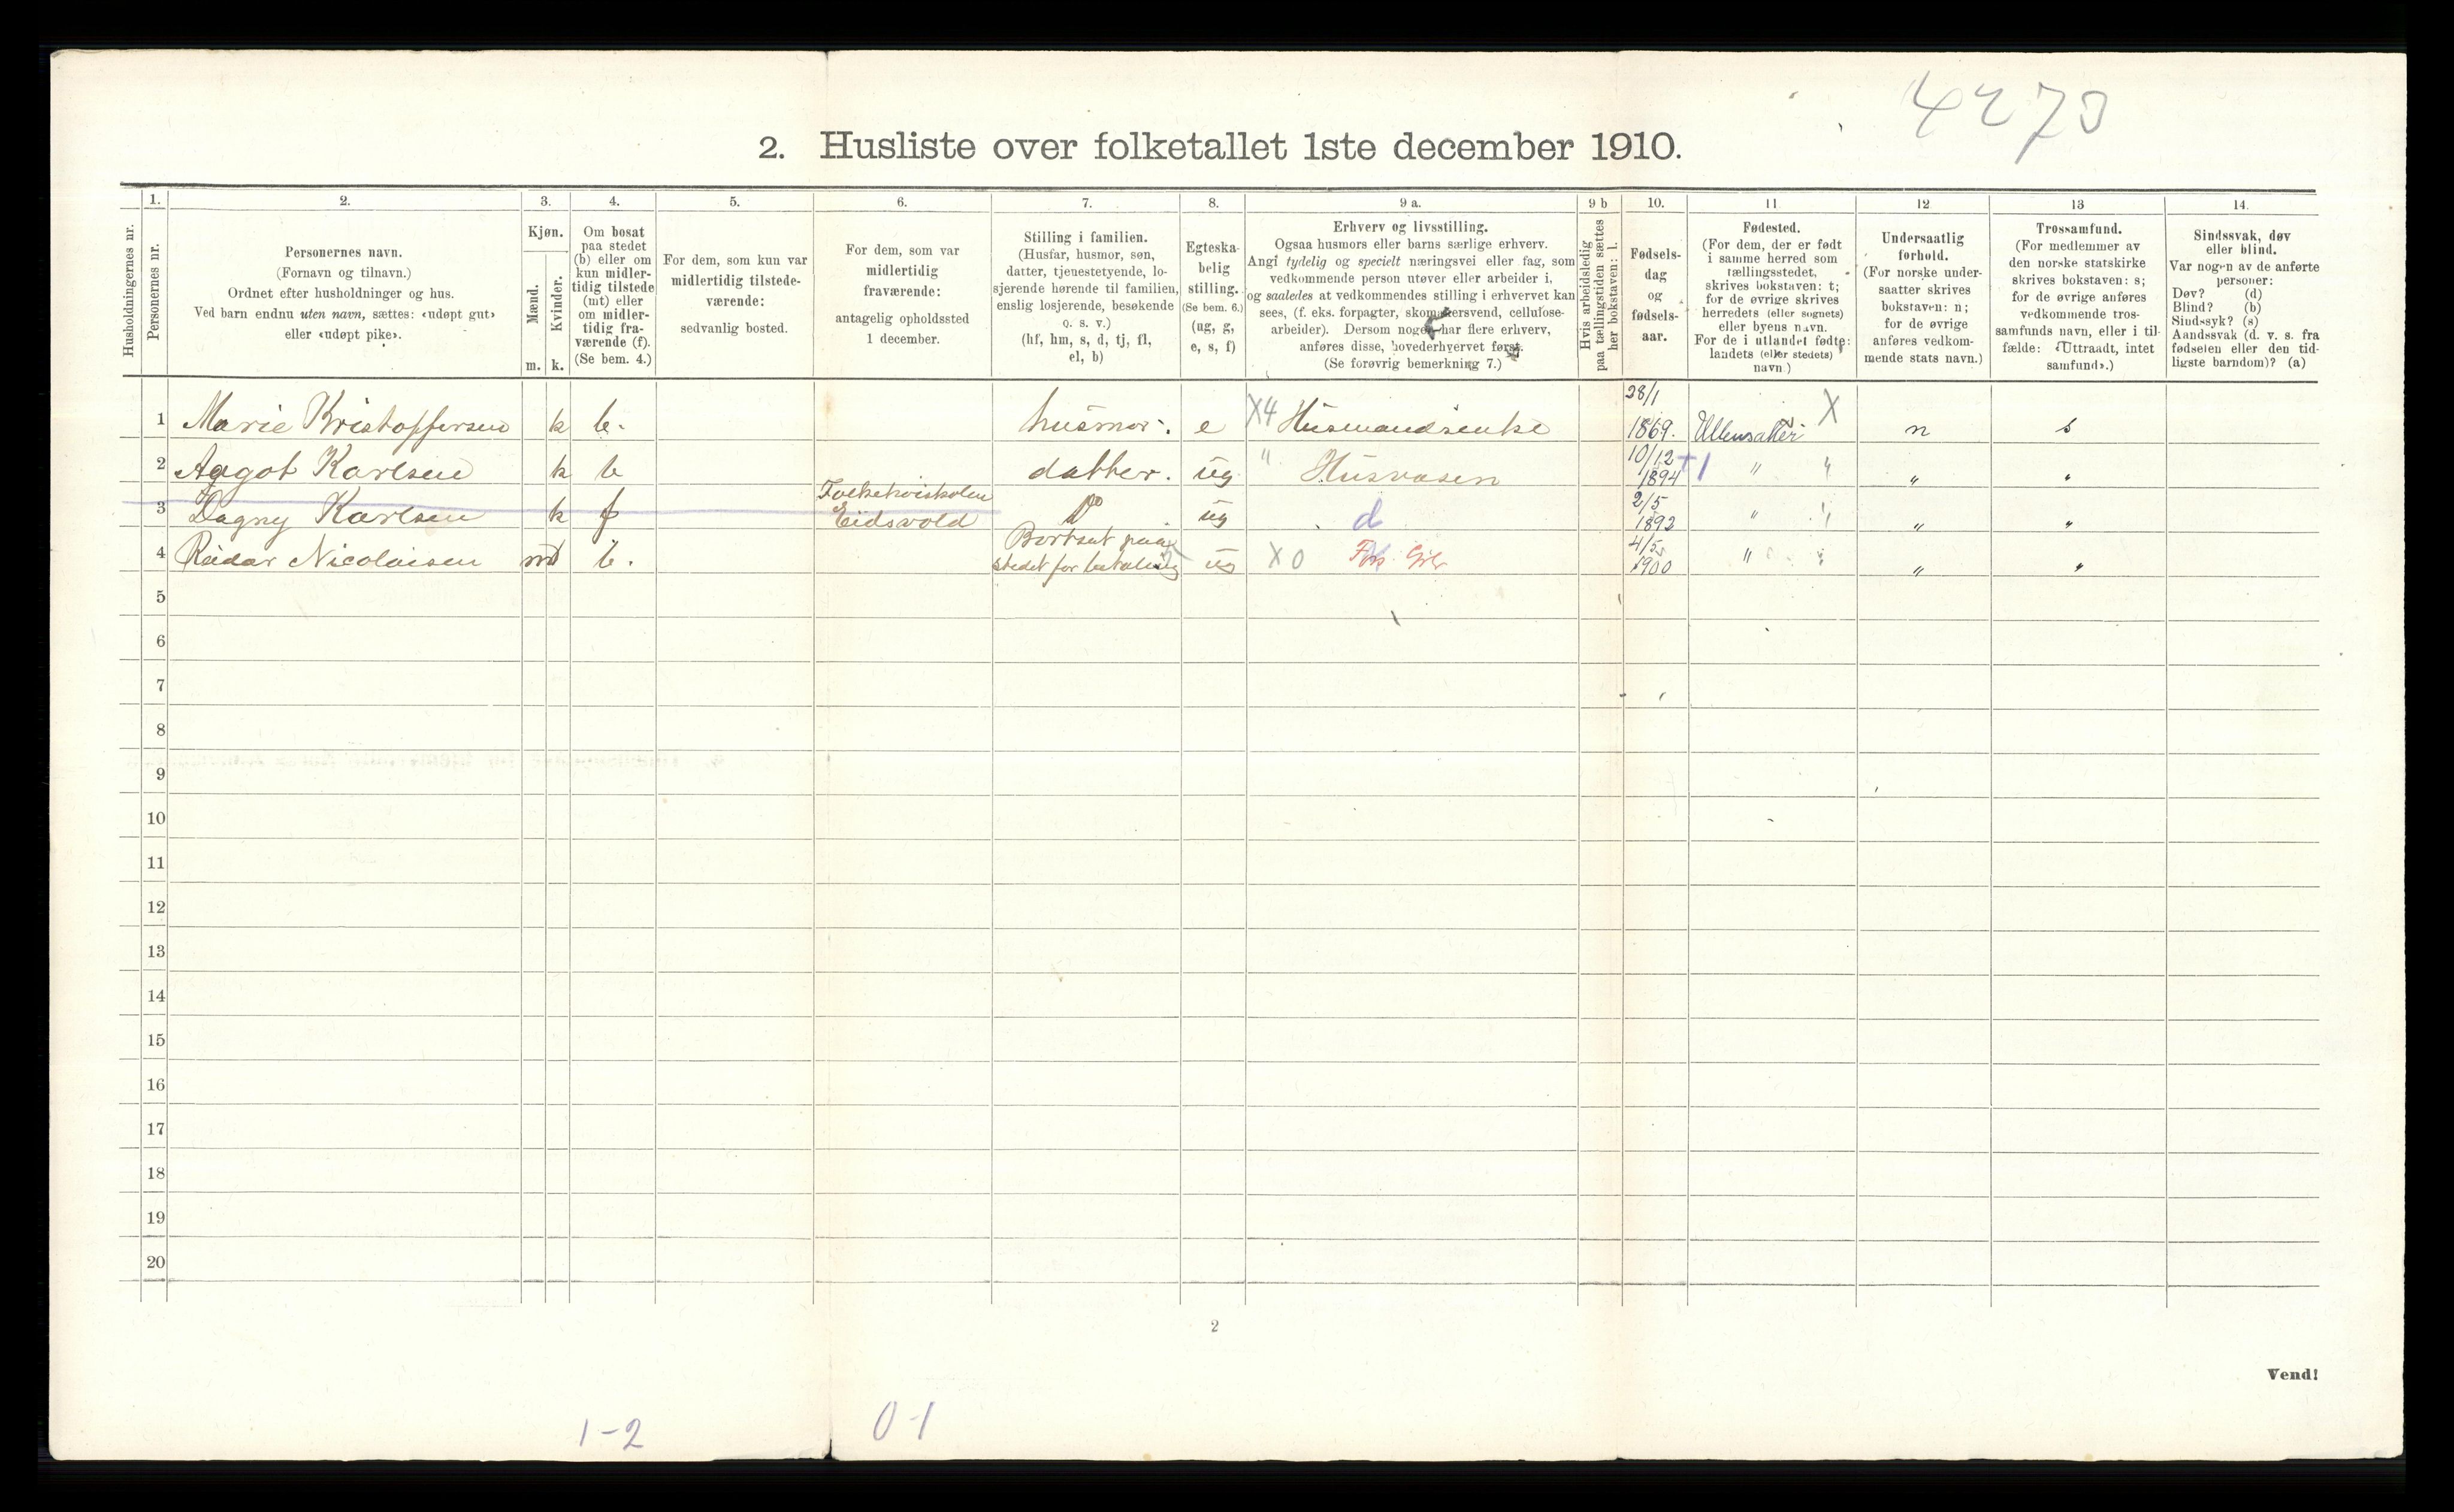 4273
2. Husliste over folketallet 1ste december 1910.
Husholdningernes nr.
1.
Personernes nr.
2.
Personernes navn.
(Fornavn og tilnavn.)
Ordnet efter husholdninger og hus.
Ved barn endnu uten navn, sættes: «udøpt gut»
eller «udøpt pike».
3.
Kjøn.
Mænd.
m.
Kvinder.
k.
4.
Om bosat
paa stedet
(b) eller om
kun midler-
tidig tilstede
(mt) eller
om midler-
tidig fra-
værende (f).
(Se bem. 4.)
5.
For dem, som kun var
midlertidig tilstede-
værende:
sedvanlig bosted.
6.
For dem, som var
midlertidig
fraværende:
antagelig opholdssted
1 december.
7.
Stilling i familien.
(Husfar, husmor, søn,
datter, tjenestetyende, lo-
sjerende hørende til familien,
enslig losjerende, besøkende
o. s. v.)
(hf, hm, s, d, tj, fl,
el, b)
8.
Egteska-
belig
stilling.
(Se bem. 6.)
(ug, g,
e, s, f)
9 a.
Erhverv og livsstilling.
Ogsaa husmors eller barns særlige erhverv.
Angi tydelig og specielt næringsvei eller fag, som
vedkommende person utøver eller arbeider i,
og saaledes at vedkommendes stilling i erhvervet kan
sees, (f. eks. forpagter, skomakersvend, cellulose-
arbeider). Dersom nogen har flere erhverv,
anføres disse, hovederhvervet først.
(Se forøvrig bemerkning 7.)
9 b
Hvis arbeidsledig
paa tællingstiden sættes
her bokstaven: l.
10.
Fødsels-
dag
og
fødsels-
aar.
11
Fødested.
(For dem, der er født
i samme herred som
tællingsstedet,
skrives bokstaven: t;
for de øvrige skrives
herredets (eller sognets)
eller byens navn.
For de i utlandet fødte:
landets (eller stedets)
navn.)
12
Undersaatlig
forhold.
(For norske under-
saatter skrives
bokstaven: n;
for de øvrige
anføres vedkom-
mende stats navn.)
13
Trossamfund.
(For medlemmer av
den norske statskirke
skrives bokstaven: s;
for de øvrige anføres
vedkommende tros-
samfunds navn, eller i til-
fælde: «Uttraadt, intet
samfund».)
14.
Sindssvak, døv
eller blind.
Var nogen av de anførte
personer:
Døv? (d)
Blind? (b)
Sindssyk? (s)
Aandssvak (d. v. s. fra
fødselen eller den tid-
ligste barndom)? (a)
1 Marie Kristoffersen k b. husmor. e X4 Husmandsenke 28/1 1869. Ullensaker X n s
2 Aagot Karlsen k b datter. ug " Husvæsen 10/12 1894 +1 " " " "
3 Dagny Karlsen k f Folkehøiskolen Eidsvold Do ug d 2/5 1892 " " " "
4 Reidar Nicolaisen m b. Bortsat paa stedet for betaling ug X 0 4/5 1900 " " " "
5
6
7
8
9
10
11
12
13
14
15
16
17
18
19
20
2
Vend!
1-2 0-1